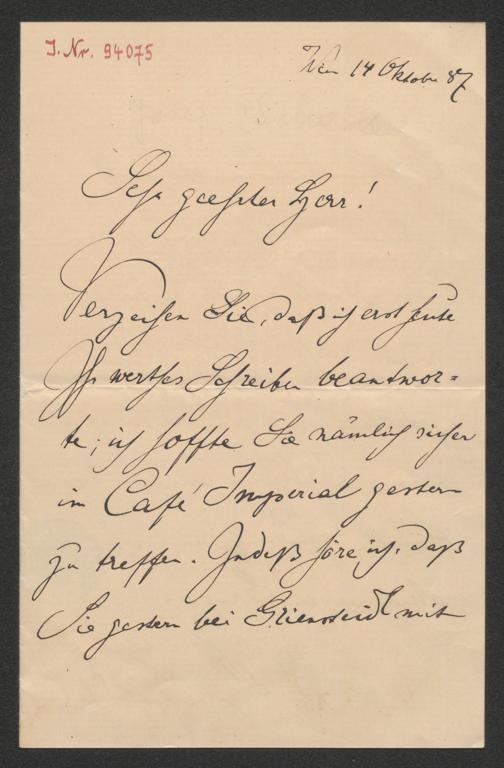 I. Nr. 94075
Wien 14 Oktober 87
Sehr geehrter Herr!
Verzeihen Sie, daß ich erst heute
Ihr werthes Schreiben beantwor=
te; ich hoffte Sie nämlich sicher
im Café Imperial gestern
zu treffen. Indeß höre ich, daß
Sie gestern bei Griensteidl mit